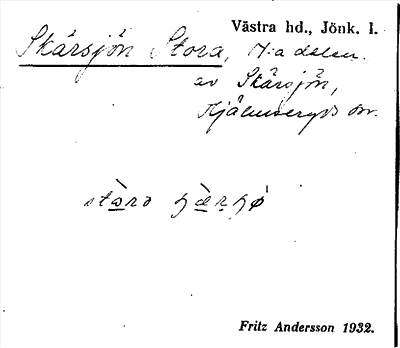 Västra hd., Jönk. l.
Skärsjön Stora, N:a delen
av Skärsjön,
Hjälmseryds sn.
Fritz Andersson 1932.